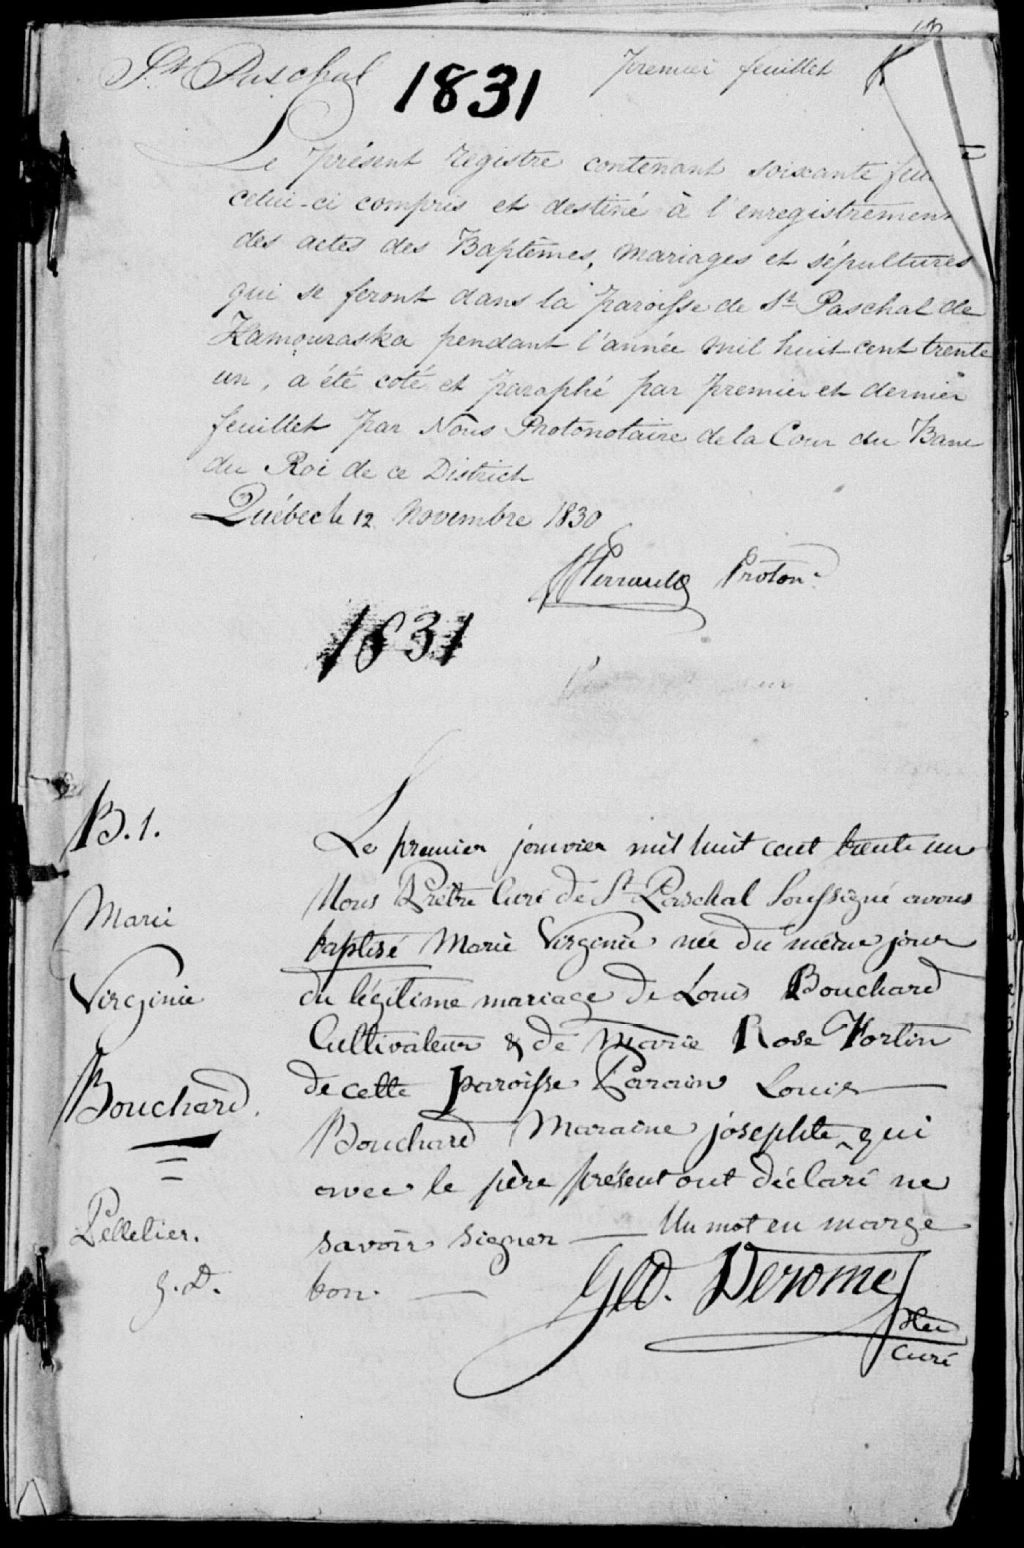 St. Paschal
1831
premier feuillet
Le présent registre contenant soixante feu
celui-ci compris et destiné à l'enregistrement
des actes des Baptêmes, mariages et sépultures
qui se feront dans la paroisse de St. Paschal de
Kamouraska pendant l'année mil huit cent trente
un, a été coté et paraphé par premier et dernier
feuillet par Nous Protonotaire de la Cour du Banc
du Roi de ce District
Québec le 12 Novembre 1830
Perrault Proton.
1831
B. 1.
Marie
Virginie
Bouchard.
Le premier janvier mil huit cent trente un
Nous Prêtre Curé de St. Paschal Soussigné avons
baptisé Marie Virginie née du même jour
du légitime mariage de Louis Bouchard
Cultivateur & de Marie Rose Fortin
de cette paroisse Parain Louis
Bouchard Maraine josephte ^ qui
avec le père présent ont déclaré ne
savoir signer — Un mot en marge
bon. —
Pelletier.
g. D.
Gd. Derome
Ptre
Curé